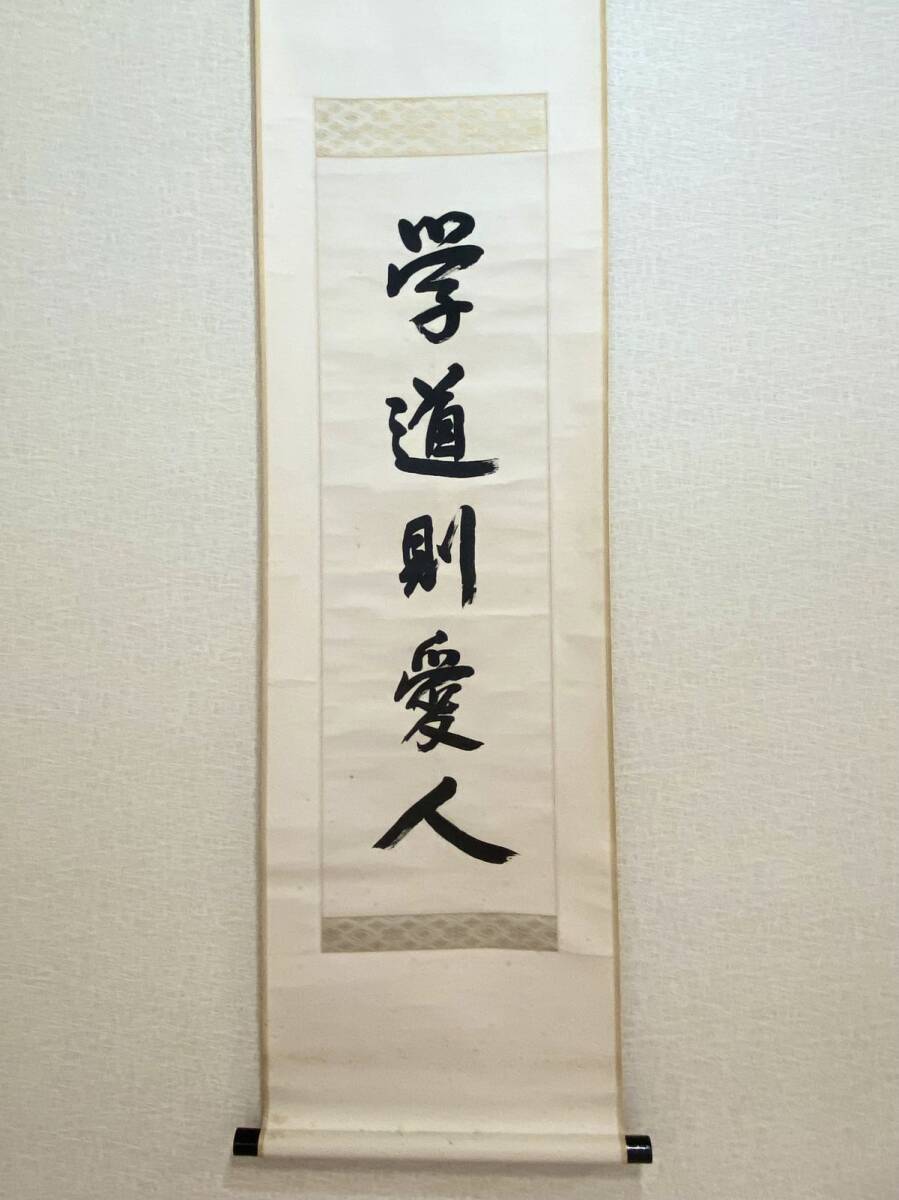 学道則愛人